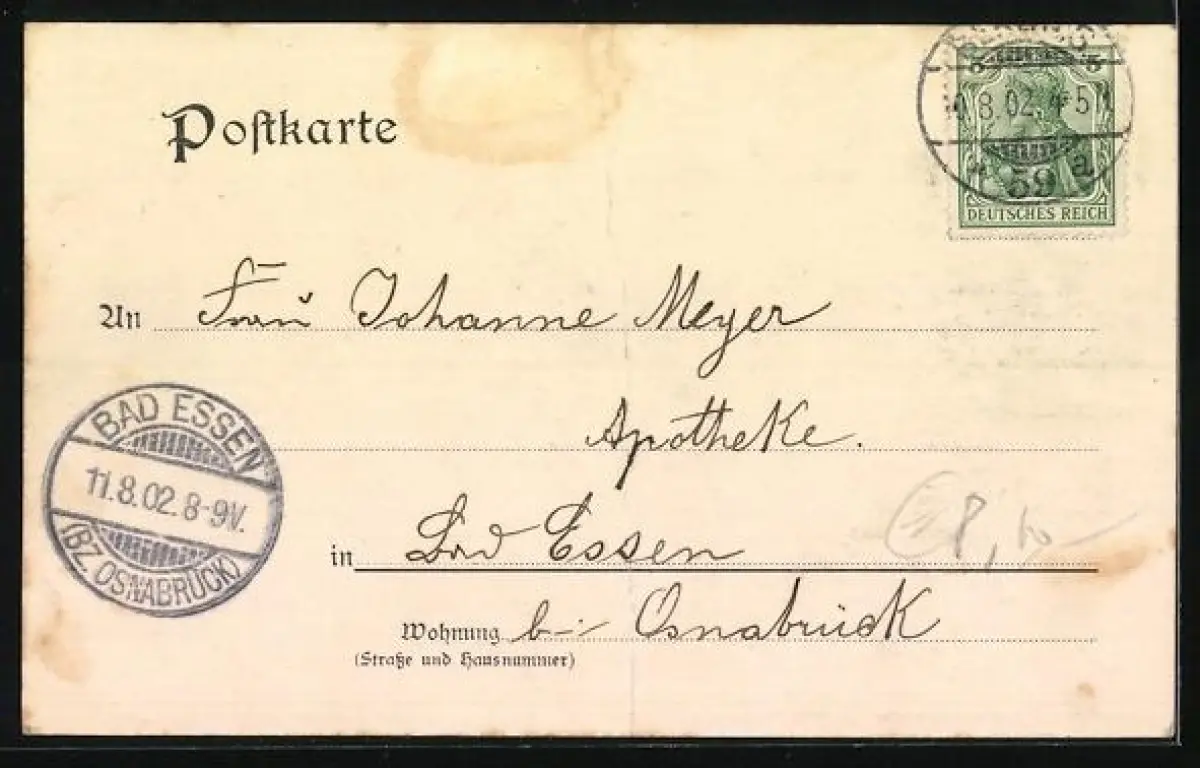 Postkarte
5 5
8.02. 4-5
59 a
DEUTSCHES REICH
An Frau Johanne Meyer
Apotheke.
BAD ESSEN
11.8.02. 8-9V.
(BZ. OSNABRÜCK)
in Bad Essen
Wohnung bei Osnabrück
(Straße und Hausnummer)